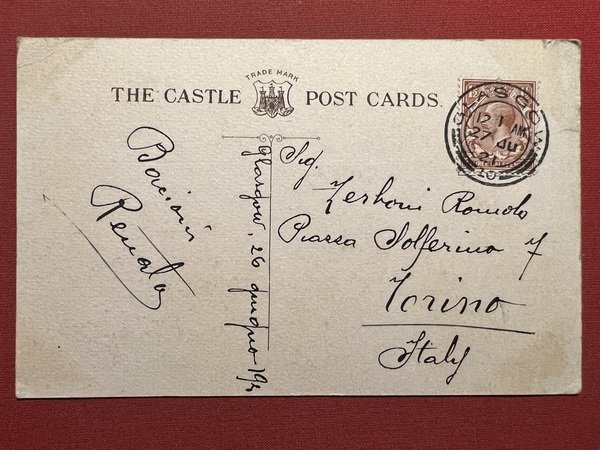 TRADE MARK
THE CASTLE POST CARDS.
Bacioni
Renato
Glasgow, 26 giugno 192
Sig.
Zerboni Romolo
Piazza Solferino 7
Torino
Italy
GLASGOW
12 1 AM
27 JU
21
10